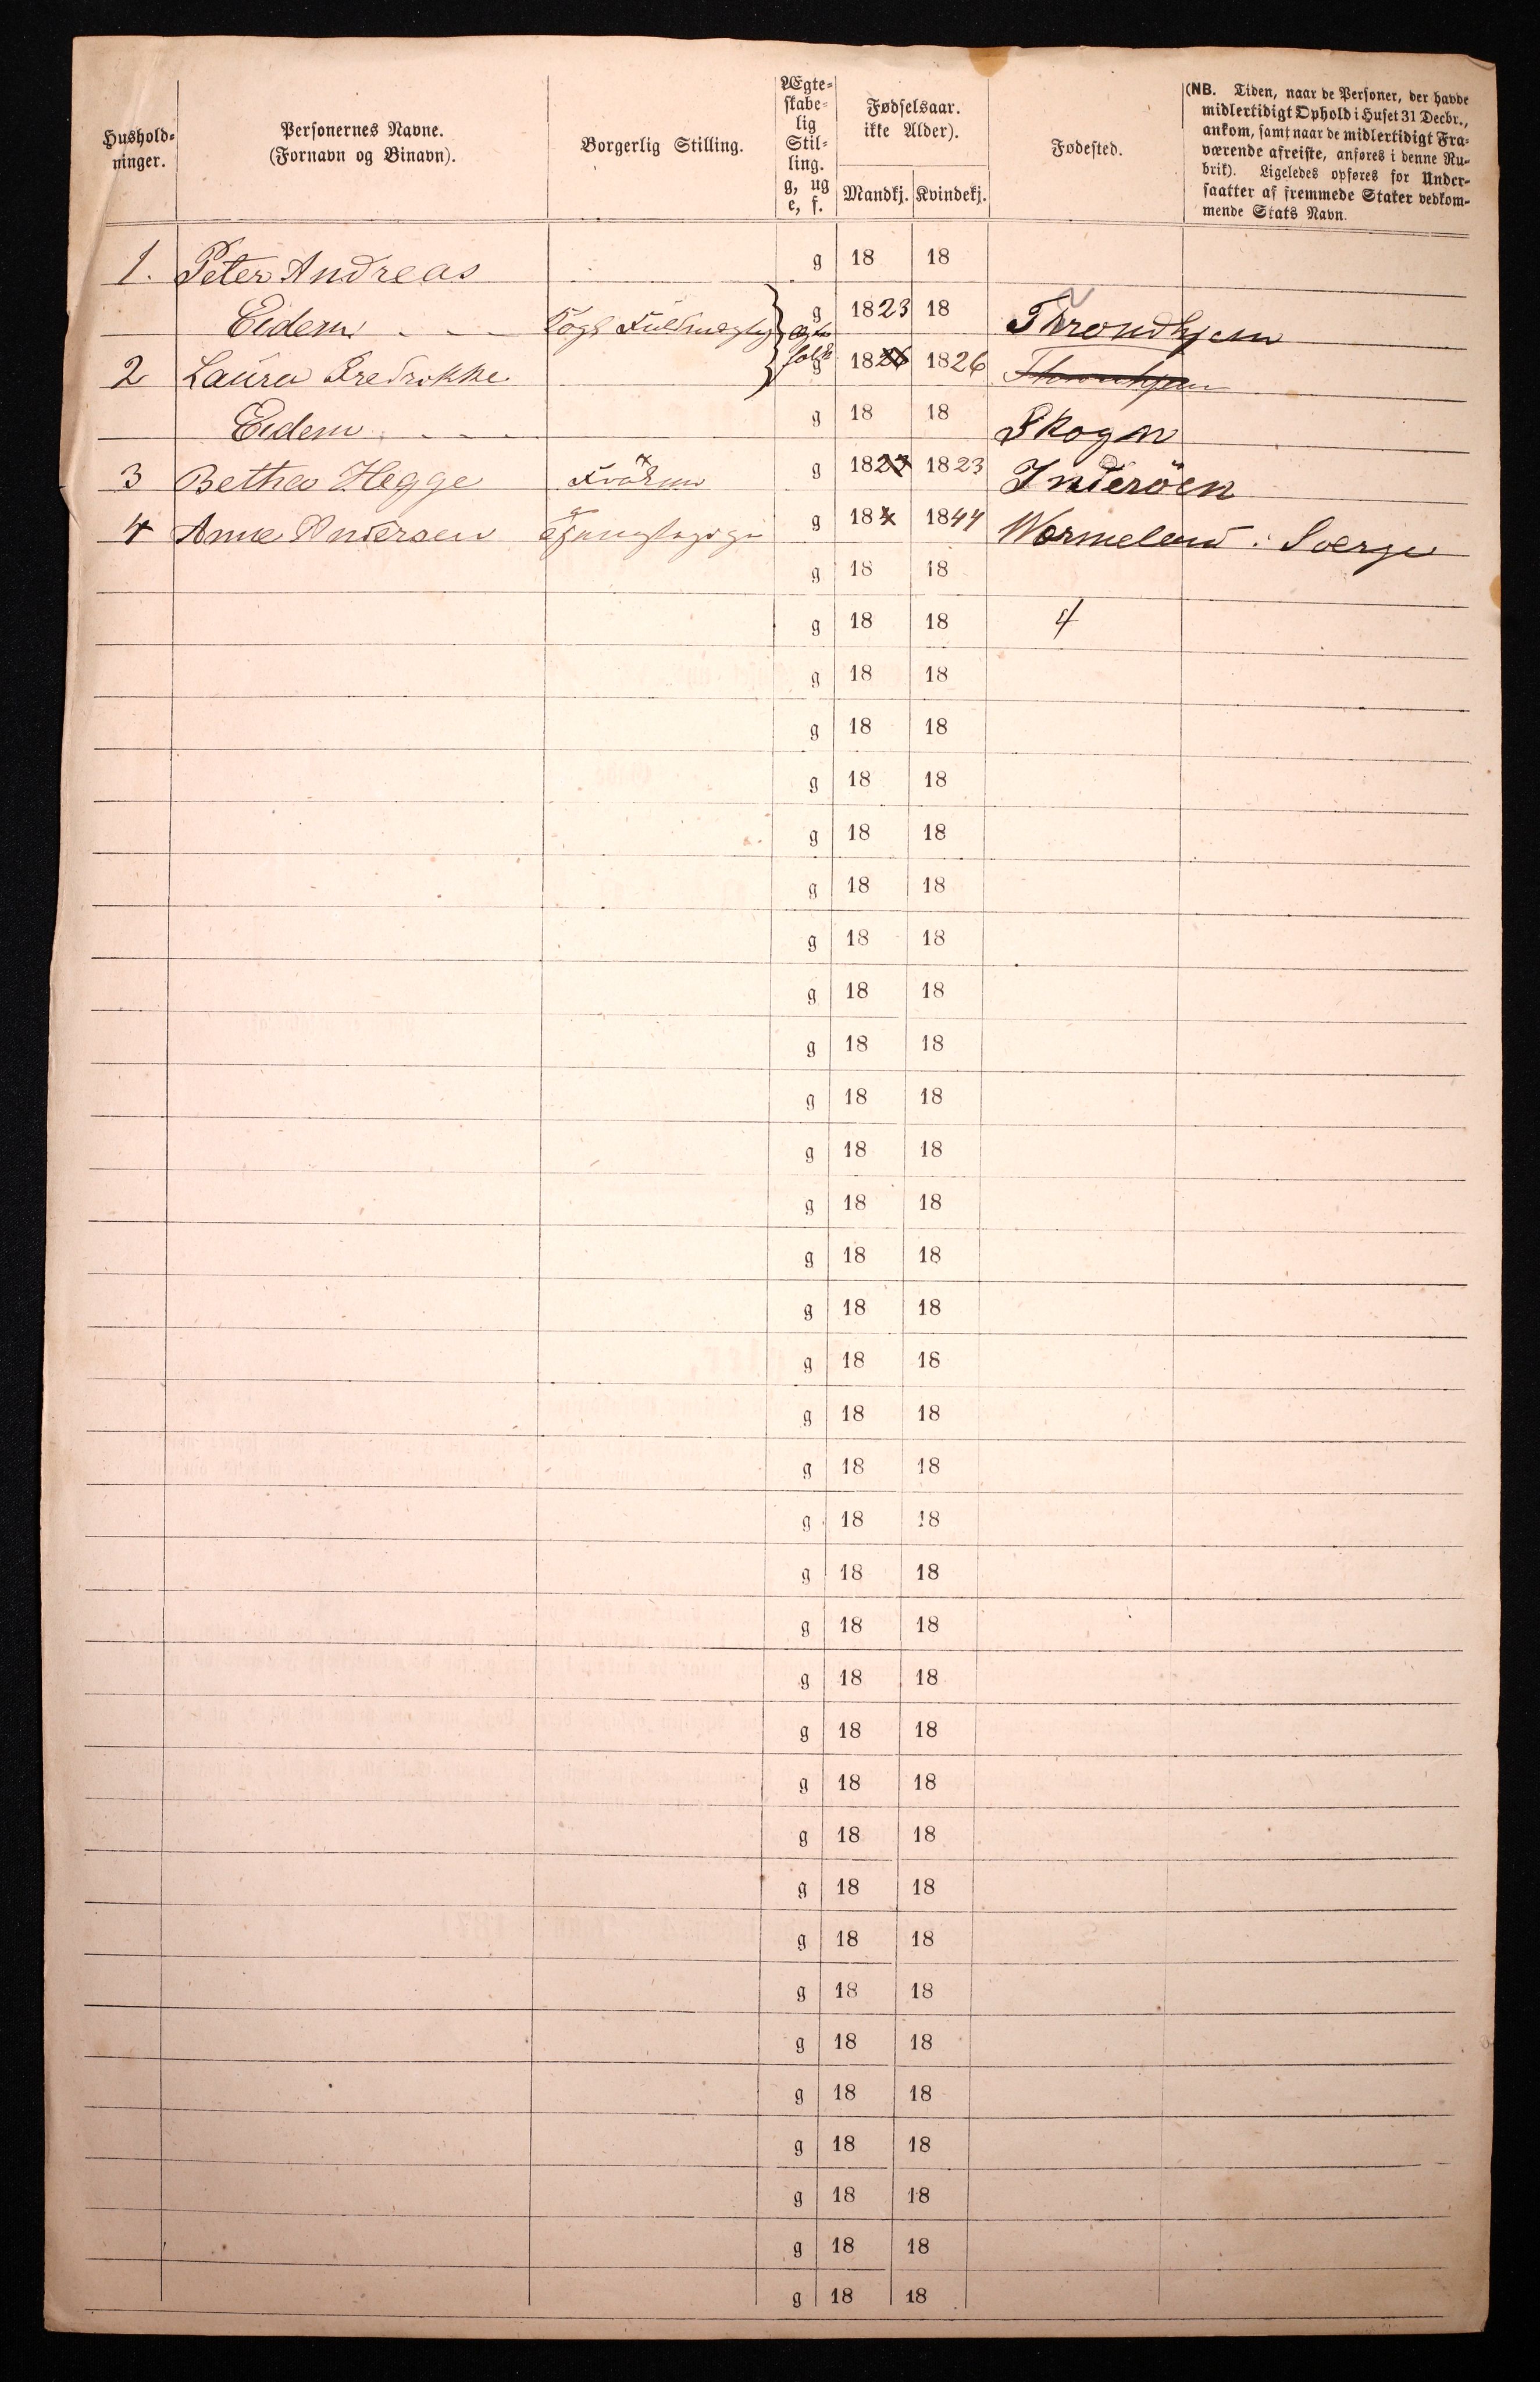 Hushold-
ninger.
Personernes Navne.
(Fornavn og Binavn).
Borgerlig Stilling.
Ægte-
skabe-
lig
Stil-
ling.
g, ug
e, f.
Fødselsaar.
ikke Alder).
Mandkj. Kvindekj.
Fødested.
(NB. Tiden, naar de Personer, der havde
midlertidigt Ophold i Huset 31 Decbr.,
ankom, samt naar de midlertidigt Fra-
værende afreiste, anføres i denne Ru-
brik). Ligeledes opføres for Under-
saatter af fremmede Stater vedkom-
mende Stats Navn.
1. Peter Andreas g 18 18
Eidem g 1823 18 Throndhjem
2 Laura Fredrikke g 1826 1826
Eidem g 18 18 Skogn
3 Bethea Hegge g 1823 1823 Inderöen
4 Anne Andersen g 184 1844 Wermeland i Sverge
g 18 18
g 18 18 4
g 18 18
g 18 18
g 18 18
g 18 18
g 18 18
g 18 18
g 18 18
g 18 18
g 18 18
g 18 18
g 18 18
g 18 18
g 18 18
g 18 18
g 18 18
g 18 18
g 18 18
g 18 18
g 18 18
g 18 18
g 18 18
g 18 18
g 18 18
g 18 18
g 18 18
g 18 18
g 18 18
g 18 18
g 18 18
g 18 18
g 18 18
g 18 18